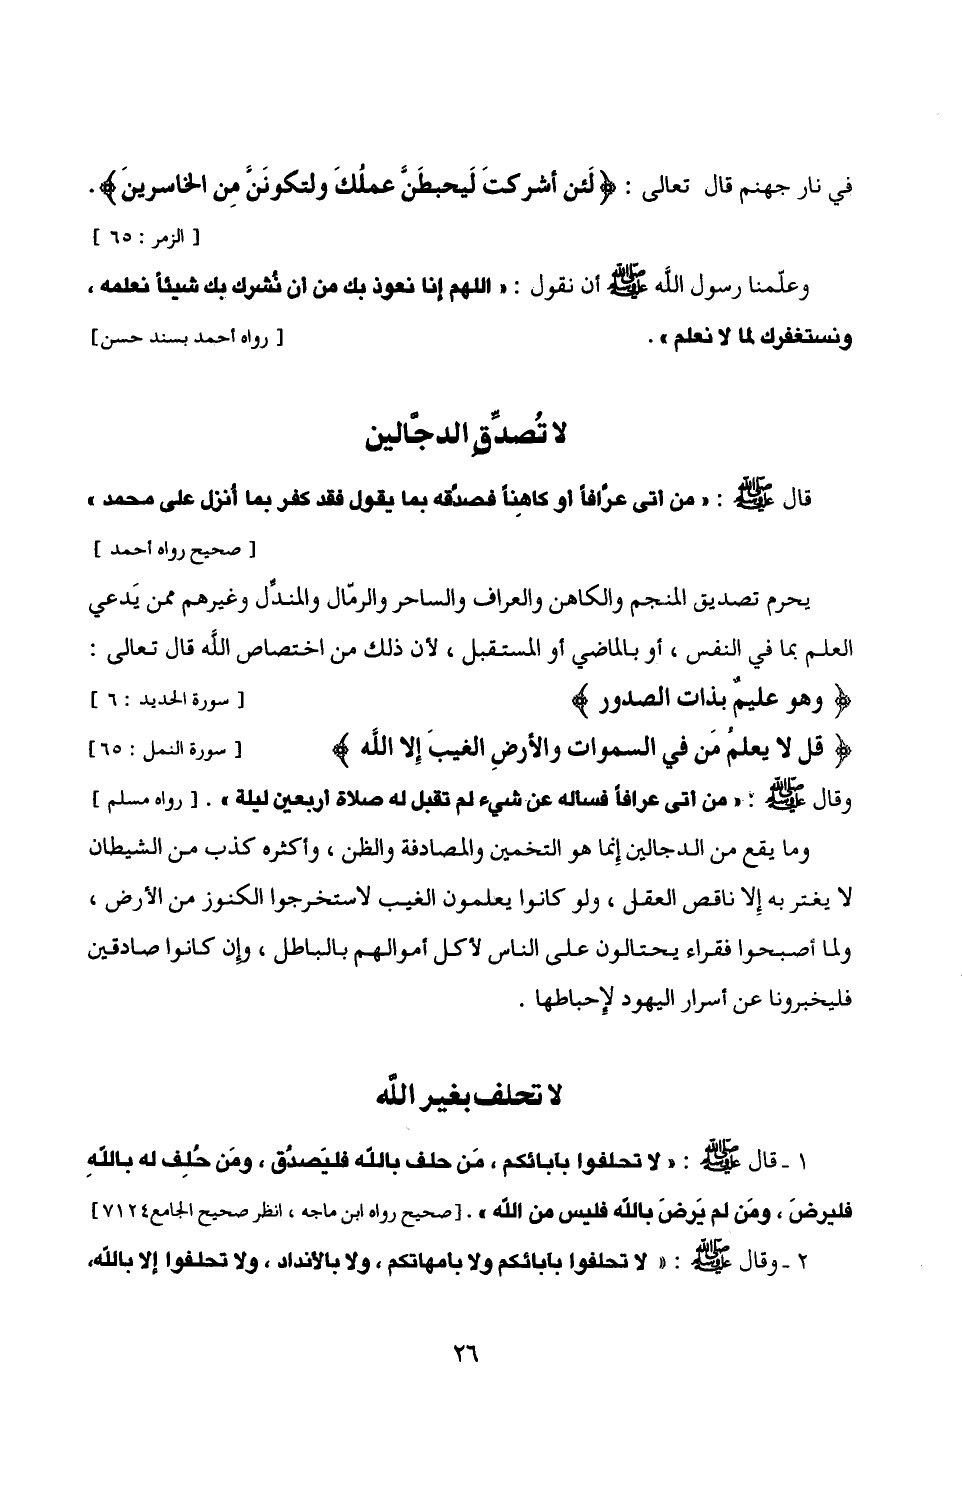 في نار جهنم قال تعالى : ﴿ لَئن أشركتَ لَيحبطَنَّ عملُكَ ولتكونَنَّ مِن الخاسرينَ ﴾ .
[ الزمر : ٦٥ ]
وعلّمنا رسول اللَّه ﷺ أن نقول : « اللهم إنا نعوذ بك من أن نُشرك بك شيئاً نعلمه ،
ونستغفرك لما لا نعلم » . [ رواه أحمد بسند حسن]
لا تُصدِّقِ الدجَّالين
قال ﷺ : « من أتى عرّافاً أو كاهنِاً فصدّقه بما يقول فقد كفر بما أُنزل على محمد »
[ صحيح رواه أحمد ]
يحرم تصديق المنجم والكاهن والعراف والساحر والرمّال والمندِّل وغيرهم ممن يَدعي
العلم بما في النفس ، أو بالماضي أو المستقبل ، لأن ذلك من اختصاص اللَّه قال تعالى :
﴿ وهو عليمٌ بذات الصدور ﴾ [ سورة الحديد : ٦ ]
﴿ قل لا يعلمُ مَن في السموات والأرضِ الغيبَ إلا اللَّه ﴾ [ سورة النمل : ٦٥]
وقال ﷺ : « من أتى عرافاً فسأله عن شيء لم تقبل له صلاة أربعين ليلة » . [ رواه مسلم ]
وما يقع من الدجالين إنما هو التخمين والمصادفة والظن ، وأكثره كذب من الشيطان
لا يغتر به إلا ناقص العقل ، ولو كانوا يعلمون الغيب لاستخرجوا الكنوز من الأرض ،
ولما أصبحوا فقراء يحتالون على الناس لأكل أموالهم بالباطل ، وإن كانوا صادقين
فليخبرونا عن أسرار اليهود لإحباطها .
لا تحلف بغير اللَّه
١ ـ قال ﷺ : « لا تحلفوا بآبائكم ، مَن حلف باللَّه فليَصدُق ، ومَن حُلِف له باللَّهِ
فليرضَ ، ومَن لم يَرضَ باللَّه فليس من اللَّه » . [صحيح رواه ابن ماجه ، انظر صحيح الجامع ٧١٢٤]
٢ ـ وقال ﷺ : « لا تحلفوا بآبائكم ولا بأمهاتكم ، ولا بالأنداد ، ولا تحلفوا إلا باللَّه،
٢٦